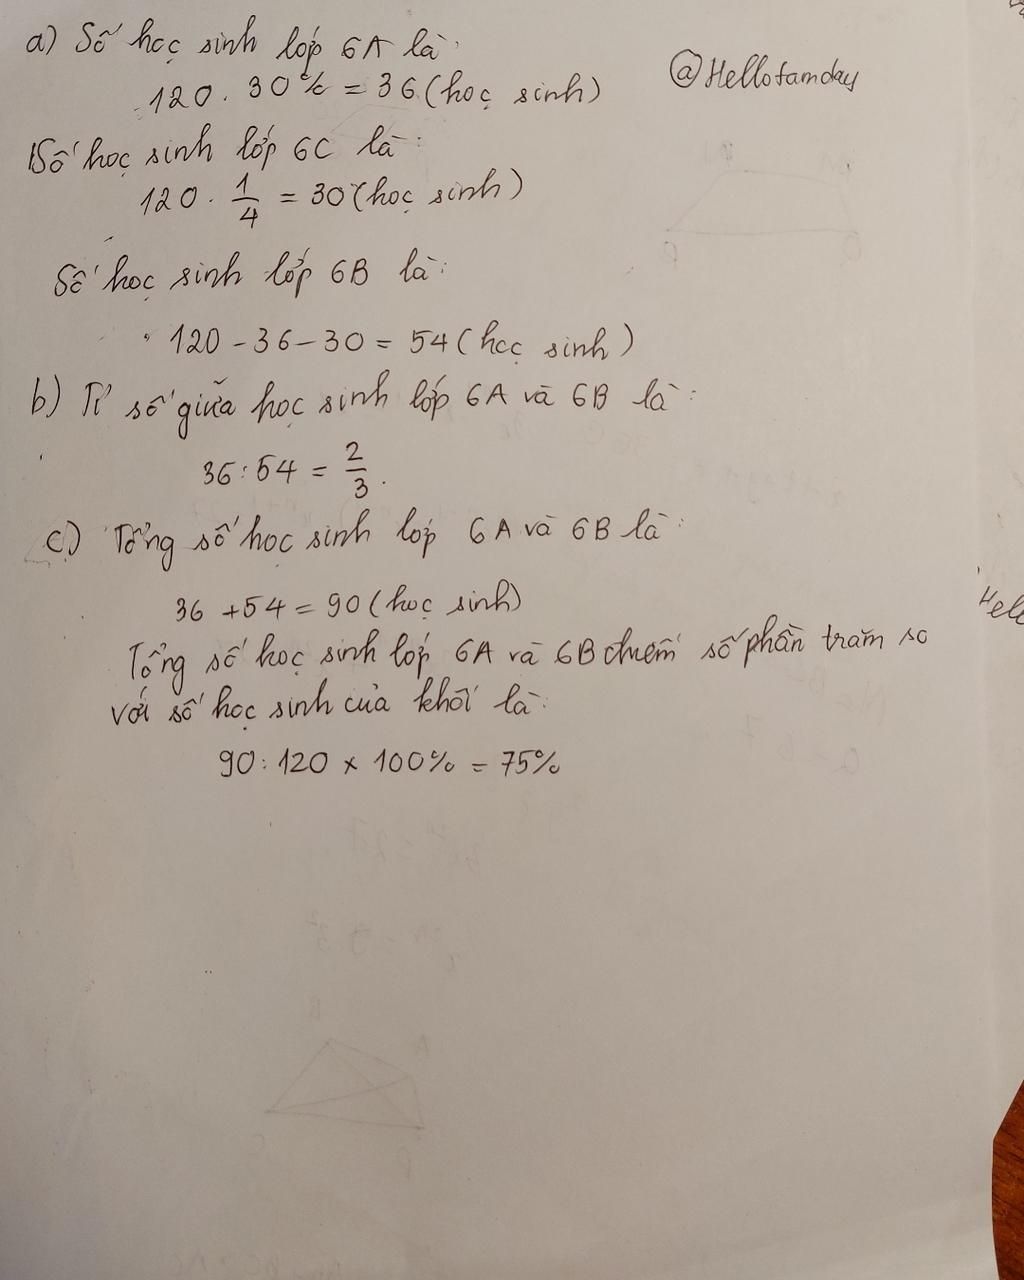 a) Số học sinh lớp 6A là:
120 . 30% = 36 (học sinh)
@Hellotamday
Số học sinh lớp 6C là:
120 . 1/4 = 30 (học sinh)
Số học sinh lớp 6B là:
120 - 36 - 30 = 54 (học sinh)
b) Tỉ số giữa học sinh lớp 6A và 6B là:
36 : 54 = 2/3.
c) Tổng số học sinh lớp 6A và 6B là:
36 + 54 = 90 (học sinh)
Tổng số học sinh lớp 6A và 6B chiếm số phần trăm so
với số học sinh của khối là:
90 : 120 x 100% = 75%
Hell